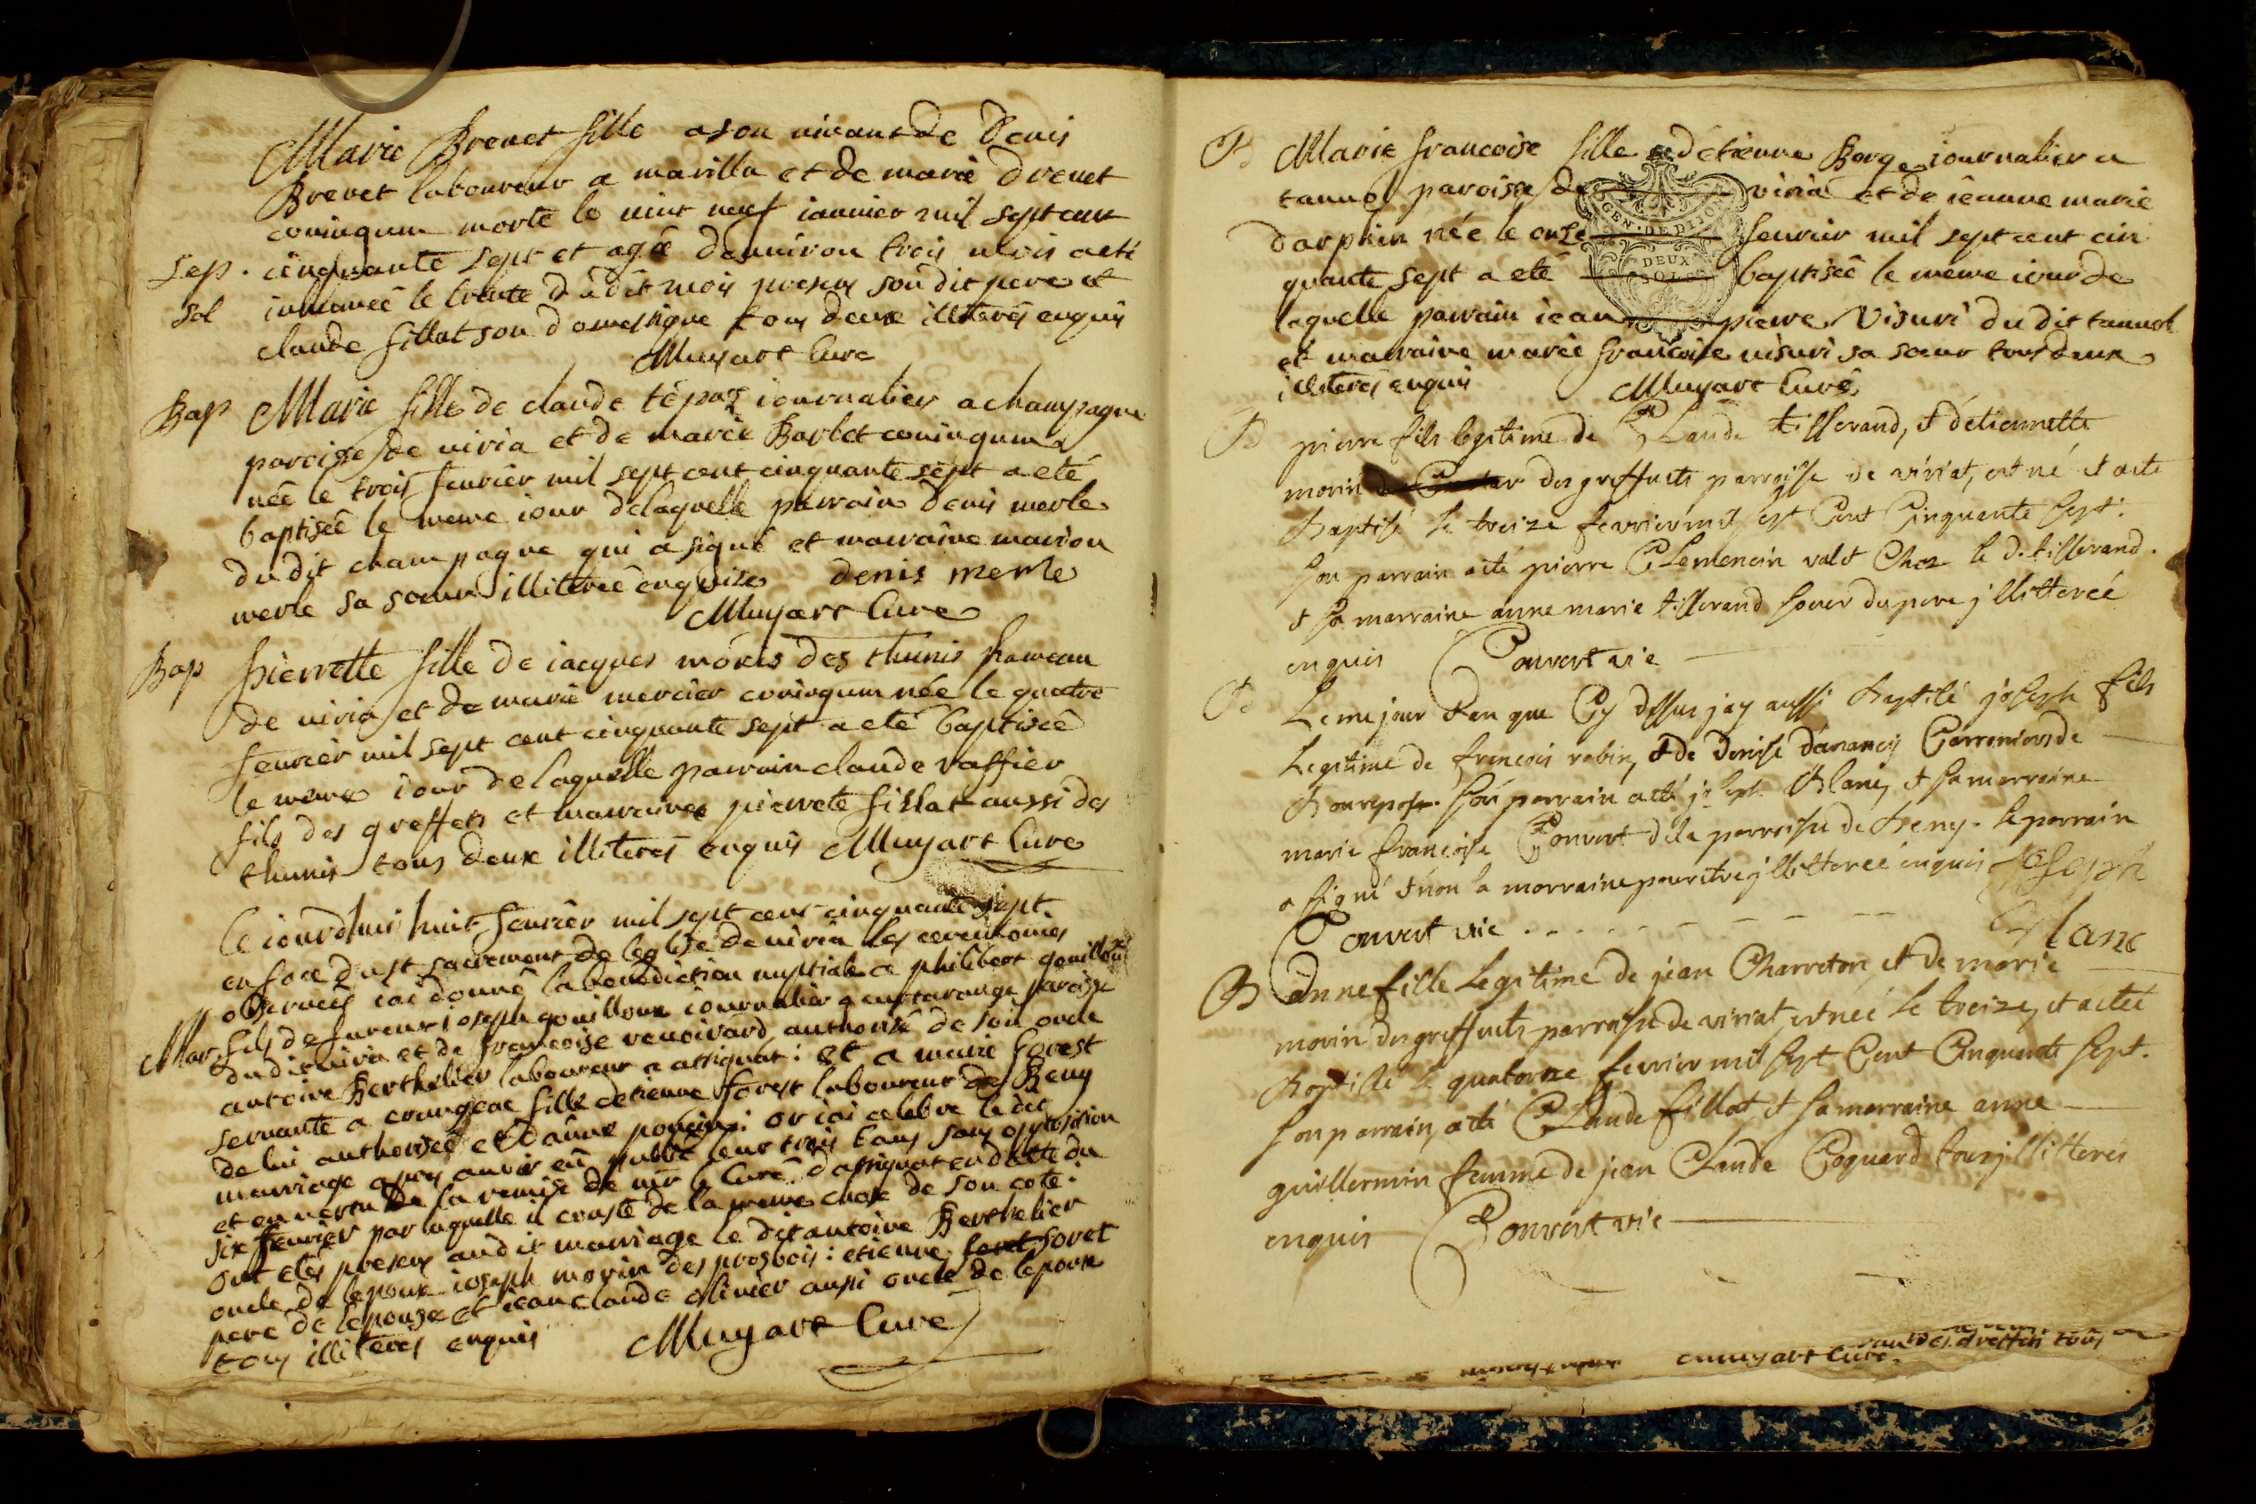 Marie Brevet fille a son vivant de Denis
Brevet laboureur a marilla et de marie drevet
coniugum morte le vint neuf ianvier mil sept cent
Sep. cinquante sept et agée denviron trois mois a eté
sol inhumeé le trente dudit mois presens son dit pere et
claude fillat son domestique tous deux illiterés enquis
Muyart Curé
Bap Marie fille de claude tépaz iournalier a champagne
paroisse de viria et de marie Barbet coniugum
née le trois fevrier mil sept cent cinquante sept a eté
baptiseé le meme iour de laquelle parrain denis merle
du dit champagne qui a signé et marraine marion
merle sa soeur illitereé enquise denis merle
Muyart Cure
Bap pierrette fille de iacques morel des thunis hameau
de viria et de marie mercier coniugum née le quatre
fevrier mil sept cent cinquante sept a eté baptiseé
le meme iour de laquelle parrain claude raffier
fils des greffets et marraine pierrete fillat aussi des
thunis tous deux illiterés enquis Muyart Cure
Ce iourdhui huit fevrier mil sept cent cinquante sept
en face du st sacrement de leglise de viria les ceremonies
observeés iai donné la benediction nuptiale a philibert gouilloux
Mar. fils de fu ioseph gouilloux iournalier a curtarange paroisse
du dit viria et de francoise renoivard authorisé de son oncle
antoine Berthelier laboureur a attignat : et a marie forest
servante a crangeac fille detienne forest laboureur de Beny
de lui authoriseé et danne poncin : or iai celebré le dit
mariage apres avoir eû publié leurs trois bans sans opposition
et en vertu de la remise de mr le Curé dattignat en datte du
six fevrier par laquelle il conste de la meme chose de son coté :
ont etés presens audit mariage le dit antoine Berthelier
oncle de lepoux ioseph morin des prosbois : etienne foret
pere de lepouse et iean claude olivier aussi oncle de lepoux
tous illiterés enquis Muyart Cure
B Marie francoise fille detienne Borge iournalier a
tannol paroisse de viria et de ieanne marie
darphin née le onze fevrier mil sept cent cin
GEN. DE DIJON
DEUX
SOLS
quante sept a eté baptiseé le meme iour de
laquelle parrain iean pierre visuri du dit tannol
et marraine marie francoise visuri sa soeur tous deux
illiterés enquis Muyart Curé
B pierre fils legitime de Claude tisserand, & détiennette
morin des greffuets parroisse de viriat, est né & a eté
Baptisé le treize fevrier mil sept Cent Cinquante sept.
son parrain a eté pierre Clemencin valet Chez le d. tisserand.
& sa marraine anne marie tisserand soeur du pere jllitterée
enquis Convert vic
B Le me jour & an que Cy dessus jay aussi Baptisé joseph fils
Legitime de francois robin, & de denise danancy
Bourepos. son parrain a eté joseph Blanc, & sa marraine
marie francoise Convert de la parroisse de Beny. le parrain
a signé & non la marraine pour etre jllitterée enquis Joseph
Convert vic . . . . . . Blanc
B Anne fille Legitime de jean Charreton, et de marie
morin des greffuets parroisse de viriat, est née le treize, et a eté
Baptisé le quatorze fevrier mil sept Cent Cinquante sept.
son parrain, a eté Claude fillat & sa marraine anne
guillermin femme de jean Claude Coquard tous jllitterés
enquis Convert vic
des greffets tous
muyart Cure.